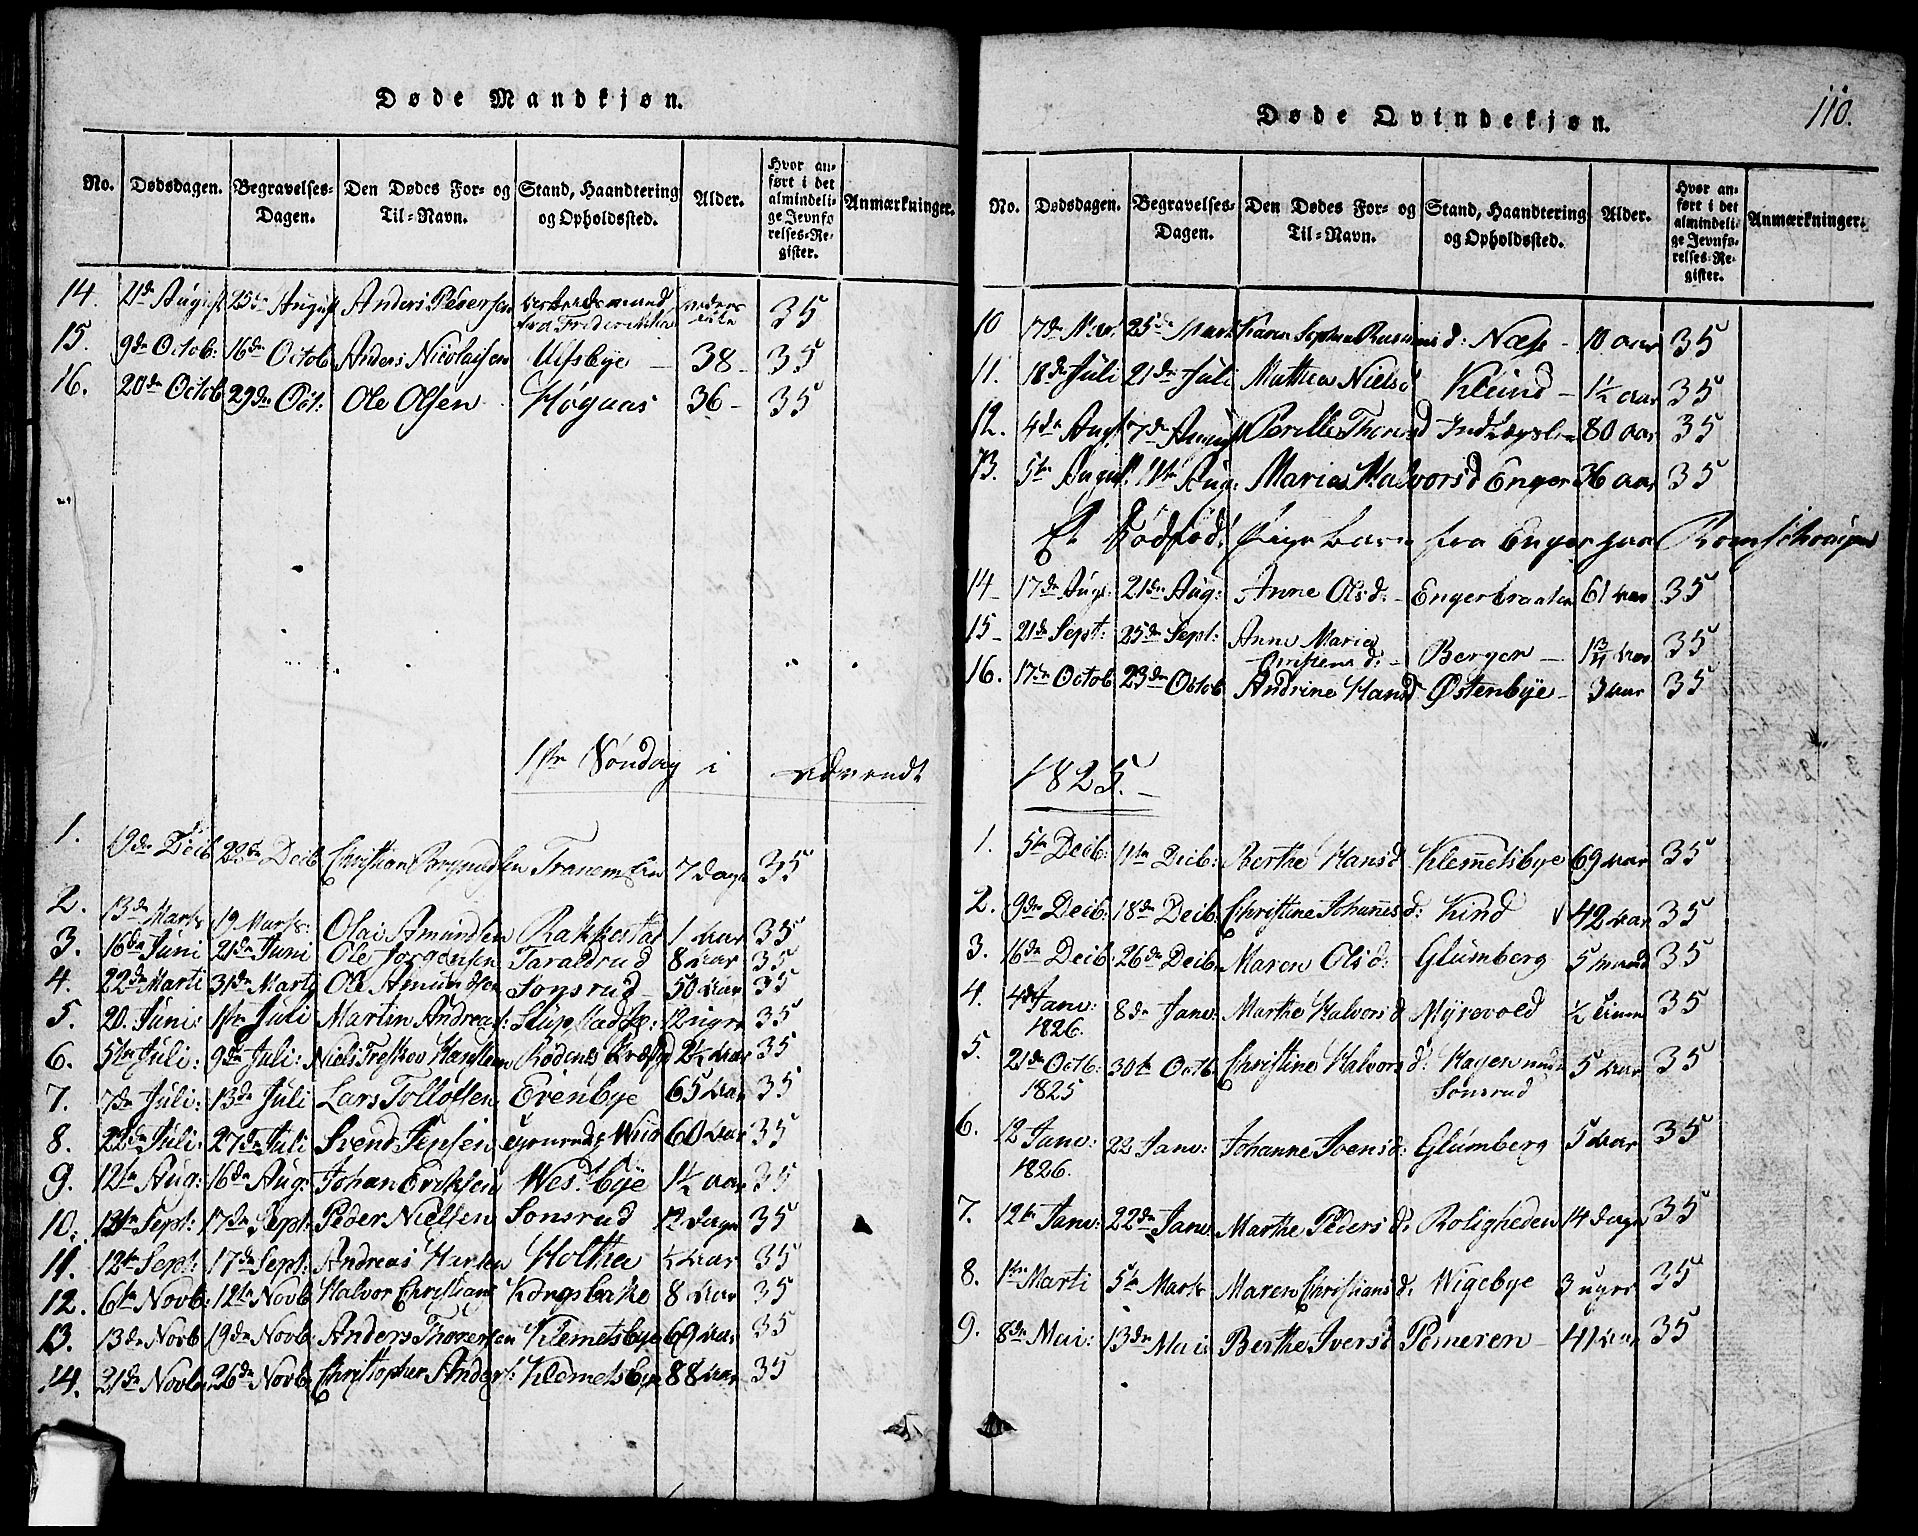 Døde Mandkjøn.
No. Dødsdagen. Begravelses-Dagen. Den Dødes For- og Til-Navn. Stand, Haandtering og Opholdssted. Alder. Hvor anført i det almindelige Jevnførelses-Register. Anmærkninger.
14. 21de August 25de August Anders Pedersen 35
fra
15. 9de Octob: 16de Octob Anders Nicolaisen Ulfsbye 38 - 35
16. 20de Octob 29de Oct: Ole Olsen Høgaas 36 - 35
1ste Søndag i Advendt
1. Decb Decb Christian 7 dage 35
2. 13de Marts 19 Marts: Olai Amundsen Rakkestad 1 aar 35
3. 16de Juni 21de Juni Ole Jørgensen Taraldrud 8 aar 35
4. 22de Marti 31de Marti Ole Amundsen Sonsrud 50 aar 35
5. 20. Juni: 1ste Juli Martin Andreas: 12 35
6. 5te Juli: 9de Juli: Niels 2½ aar 35
7. 7de Juli: 13de Juli Lars Tollofsen Evenbye 65 aar 35
8. 22de Juli: 27de Juli Svend Jensen 60 aar 35
9. 12te Aug: 16de Aug: Johan Eriksen Westbye 1½ aar 35
10. Sept: 17de Sept: Peder Nielsen Sonsrud 12 dage 35
11. 12te Sept: 17de Sept: Andreas Holthe ½ aar 35
12. 6te Novb: 12te Novb Halvor Christians Kongsbake 8 aar 35
13. 13de Novb 19de Novb: Anders Thoresen Klemetsbye 69 aar 35
14. 21de Novb 26de Novb Christopher Anders: Klemetsbye 88 aar 35
Døde Qvindekjøn.
110.
No. Dødsdagen. Begravelses-Dagen. Den Dødes For- og Til-Navn. Stand, Haandtering og Opholdssted. Alder. Hvor anført i det almindelige Jevnførelses-Register. Anmærkninger.
10 7de 25de Karen Sophie d: Næs - 10 aar 35
11. 18de Juli 21de Juli Mathea Nielsd Klund - 1½ aar 35
12. 4de Aug 7de August Pernille 80 aar 35
13. 5te August 11te Aug: Maria Halvorsd Enger 36 aar 35
Et Dødfød: Pige barn fra Enger paa
14 - 17de Aug: 21de Aug: Anne Olsd: - Engerbraaten 61 aar 35
15 - 21de Sept: 25de Sept: Anne Maria Berger - aar 35
d: -
16. 17de Octob 23de Octob Andrine Hansd Østenbye - 3 aar 35
1825. -
1. 5te Decb: 11te Decb: Berthe Hansd Klemetsbye 69 aar 35
2. 9de Decb: 18de Decb: Christine Johannesd: Kind 42 aar 35
3. 16de Decb: 26de Decb: Maren Olsd: Glumberg 5 35
4. 4de Janv: 8de Janv: Marthe Halvorsd Myrevold ½ time 35
1826.
5. 21de Octb: 30te Octb Christine Halvorsd: Hagen under 5 aar 35
1825 Sonsrud
6. 12 Janv: 22 Janv: Johanne Ivensd: Glumberg 5 aar 35
1826.
7. 12te Janv: 22de Janv: Marthe Pedersd: Roligheden 14 dage 35
8. 1ste Marti 5te Marts Maren Christiansd: Wigebye 3 uger 35
9. 8de Mai: 13de Mai Berthe Iversd Pomeren - 41 aar 35